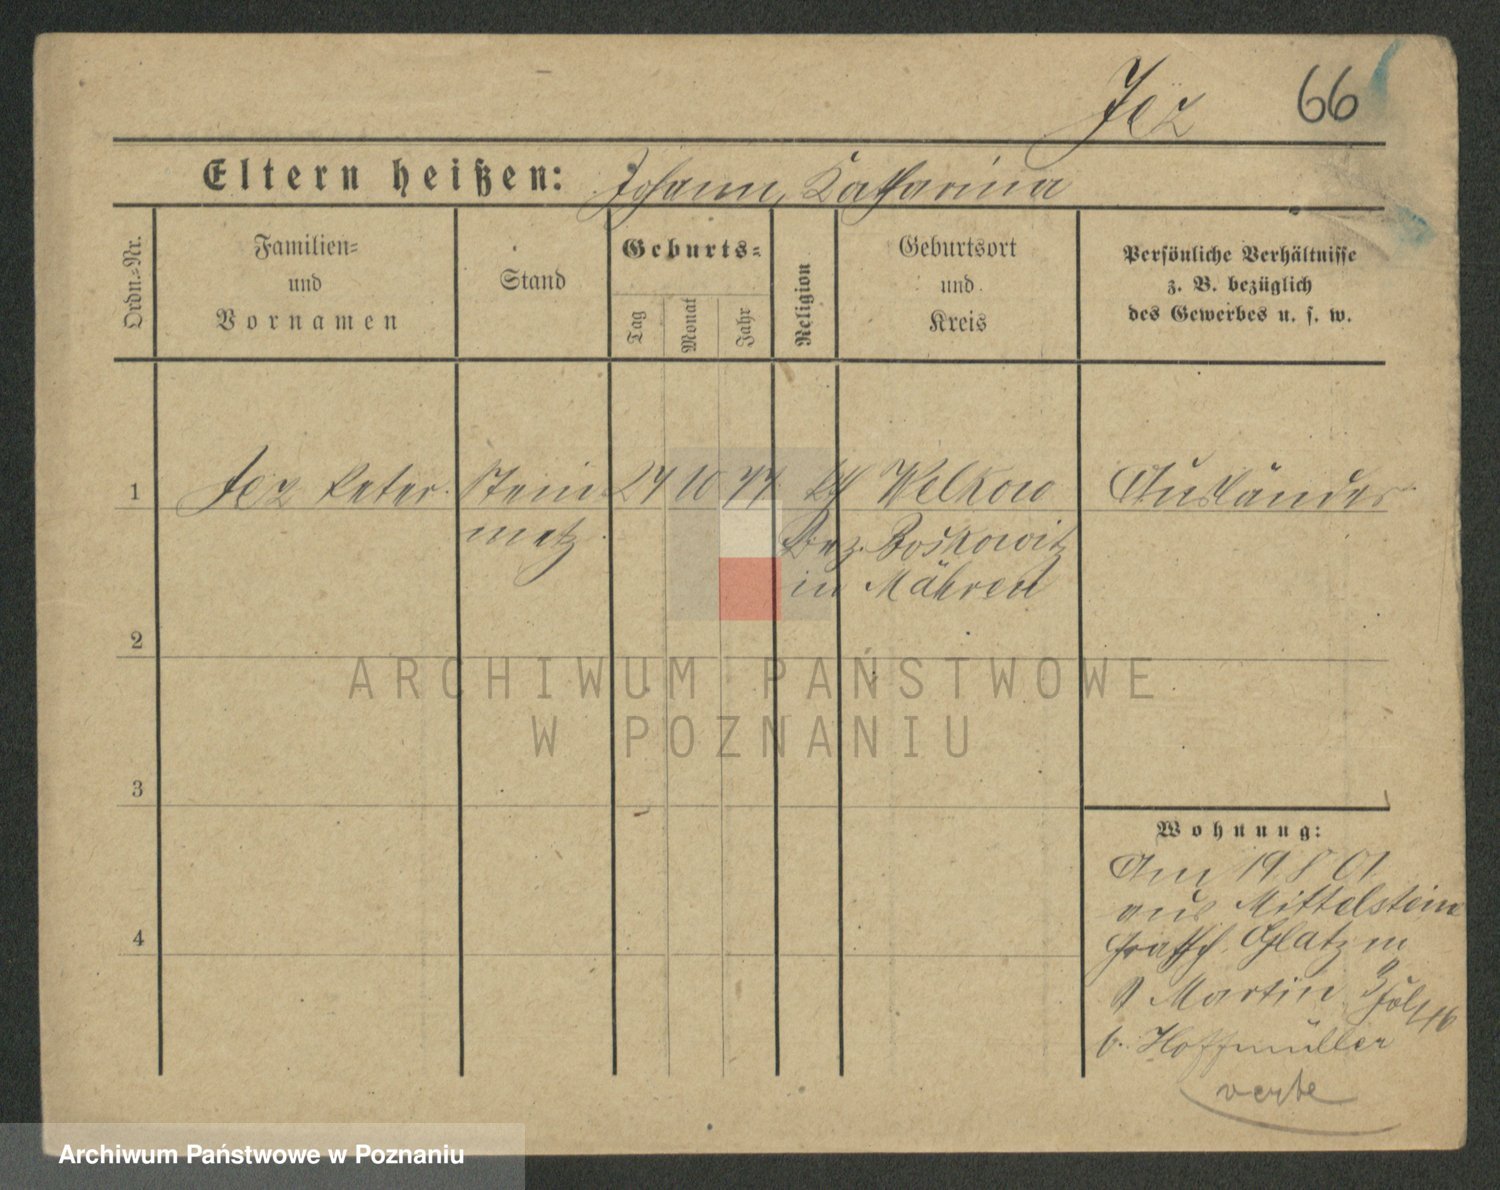 Jez 66
Eltern heißen: Johann, Katharina
Ordn.=Nr.
Familien=
und
Vornamen
Stand
Geburts=
Tag
Monat
Jahr
Religion
Geburtsort
und
Kreis
Persönliche Verhältnisse
z. B. bezüglich
des Gewerbes u. s. w.
1 Jez Peter. Stein 24 10 77 Welkow Ausländer
metz. Bez. Boskowitz
in Mähren
2
3
4
Wohnung:
Am 19 8 01
aus Mittelstein
Grafsch. Glatz in
Martin
b. Hoffmüller
verte
ARCHIWUM PAŃSTWOWE
W POZNANIU
Archiwum Państwowe w Poznaniu